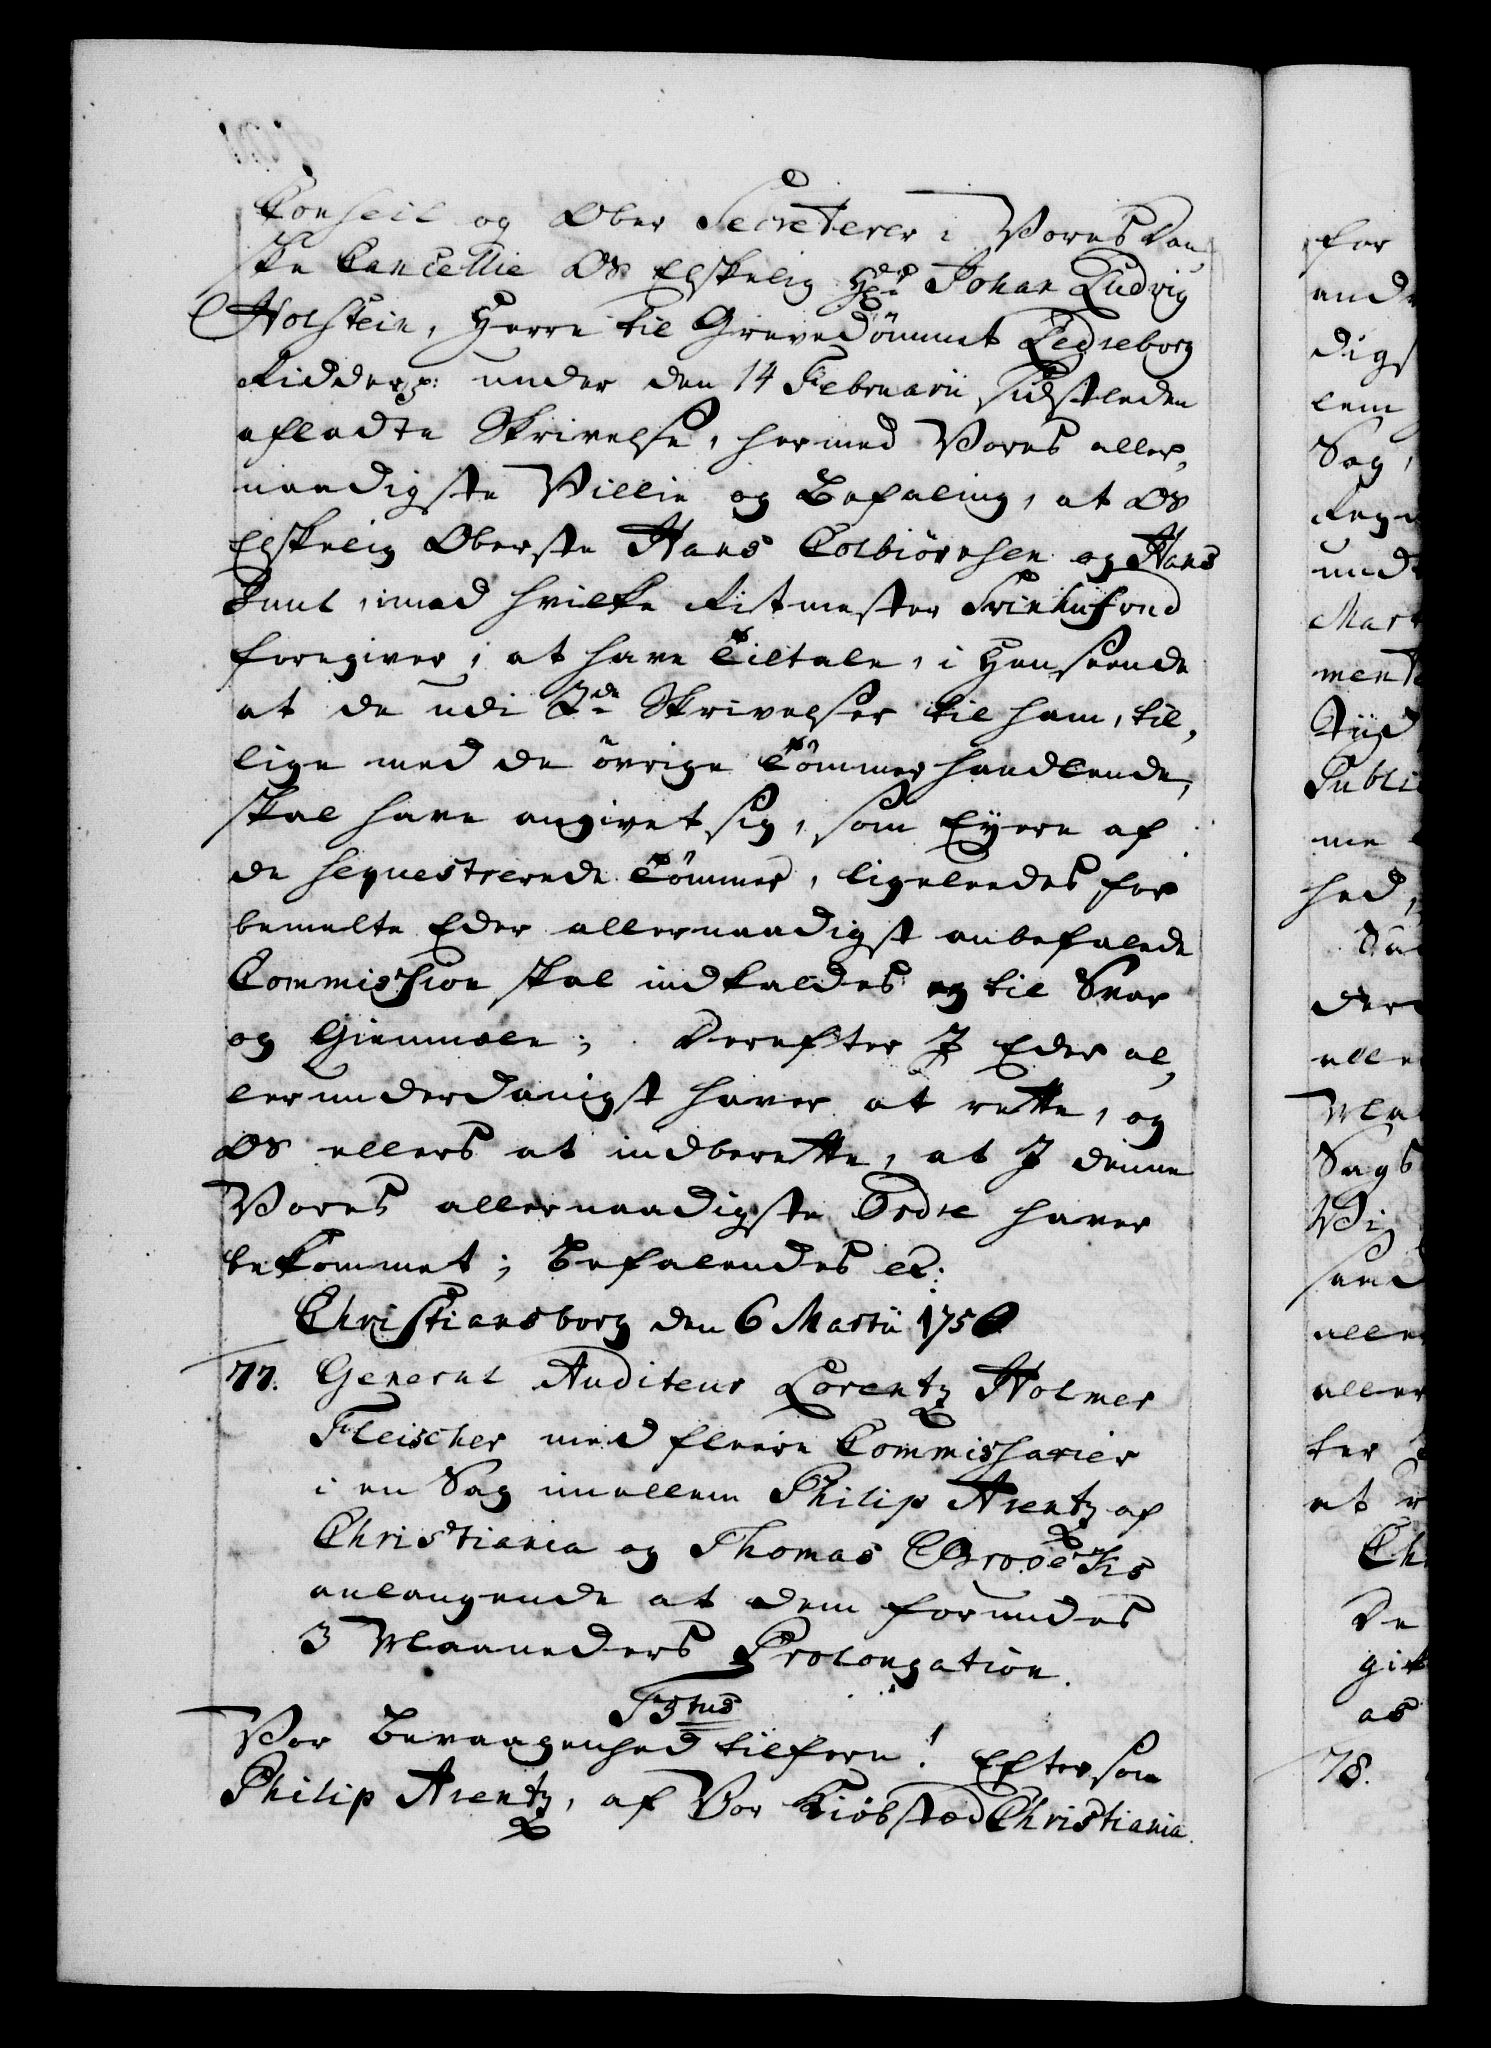 Conseil og Ober Secreterer i Vores Dan,
ske Cancellie Os Elskelig Hr Johan Ludvig
Holstein, Herre til Grevedömmet Ledreborg
Ridder p: under den 14 Februarii sidstleden
afladte Skrivelse, hermed Vores aller,
naadigste Villie og Befaling, at Os
Elskelig Oberste Hans Colbiörnsen og Hans
Juul, imod hvilke Ritmester Svinhufvud
foregiver, at have Tiltale, i Henseende
at de udi 2de Skrivelser til ham, til,
lige med de övrige Tömmerhandlende,
skal have angivet sig, som Eyere af
de sequestrerede Tömmer, ligeledes for
bemelte Eder allernaadigst anbefalede
Commission skal indkaldes og til Svar
og Giennmæle; Derefter I Eder al,
lerunderdanigst haver at rette, og
Os ellers at indberette, at I denne
Vores allernaadigste Ordre haver
bekommet; Befalendes etc:
Christiansborg den 6 Martii 1750
77. General Auditeur Lorentz Holmer
Fleischer med fleere Commissarier
i en Sag imellem Philip Arentz af
Christiania og Thomas
anlangende at dem forundes
3 Maaneders Prolongation.
F5tus
Vor Bevaagenhed tilforn! Eftersom
Philip Arentz, af Vor Kiöbsted Christiania
for
digs
lem
Sag,
Mar
Tiid
Publi
me
hed,
Sags
Vi
alle
aller
ter
at
Ch
De
as
78.